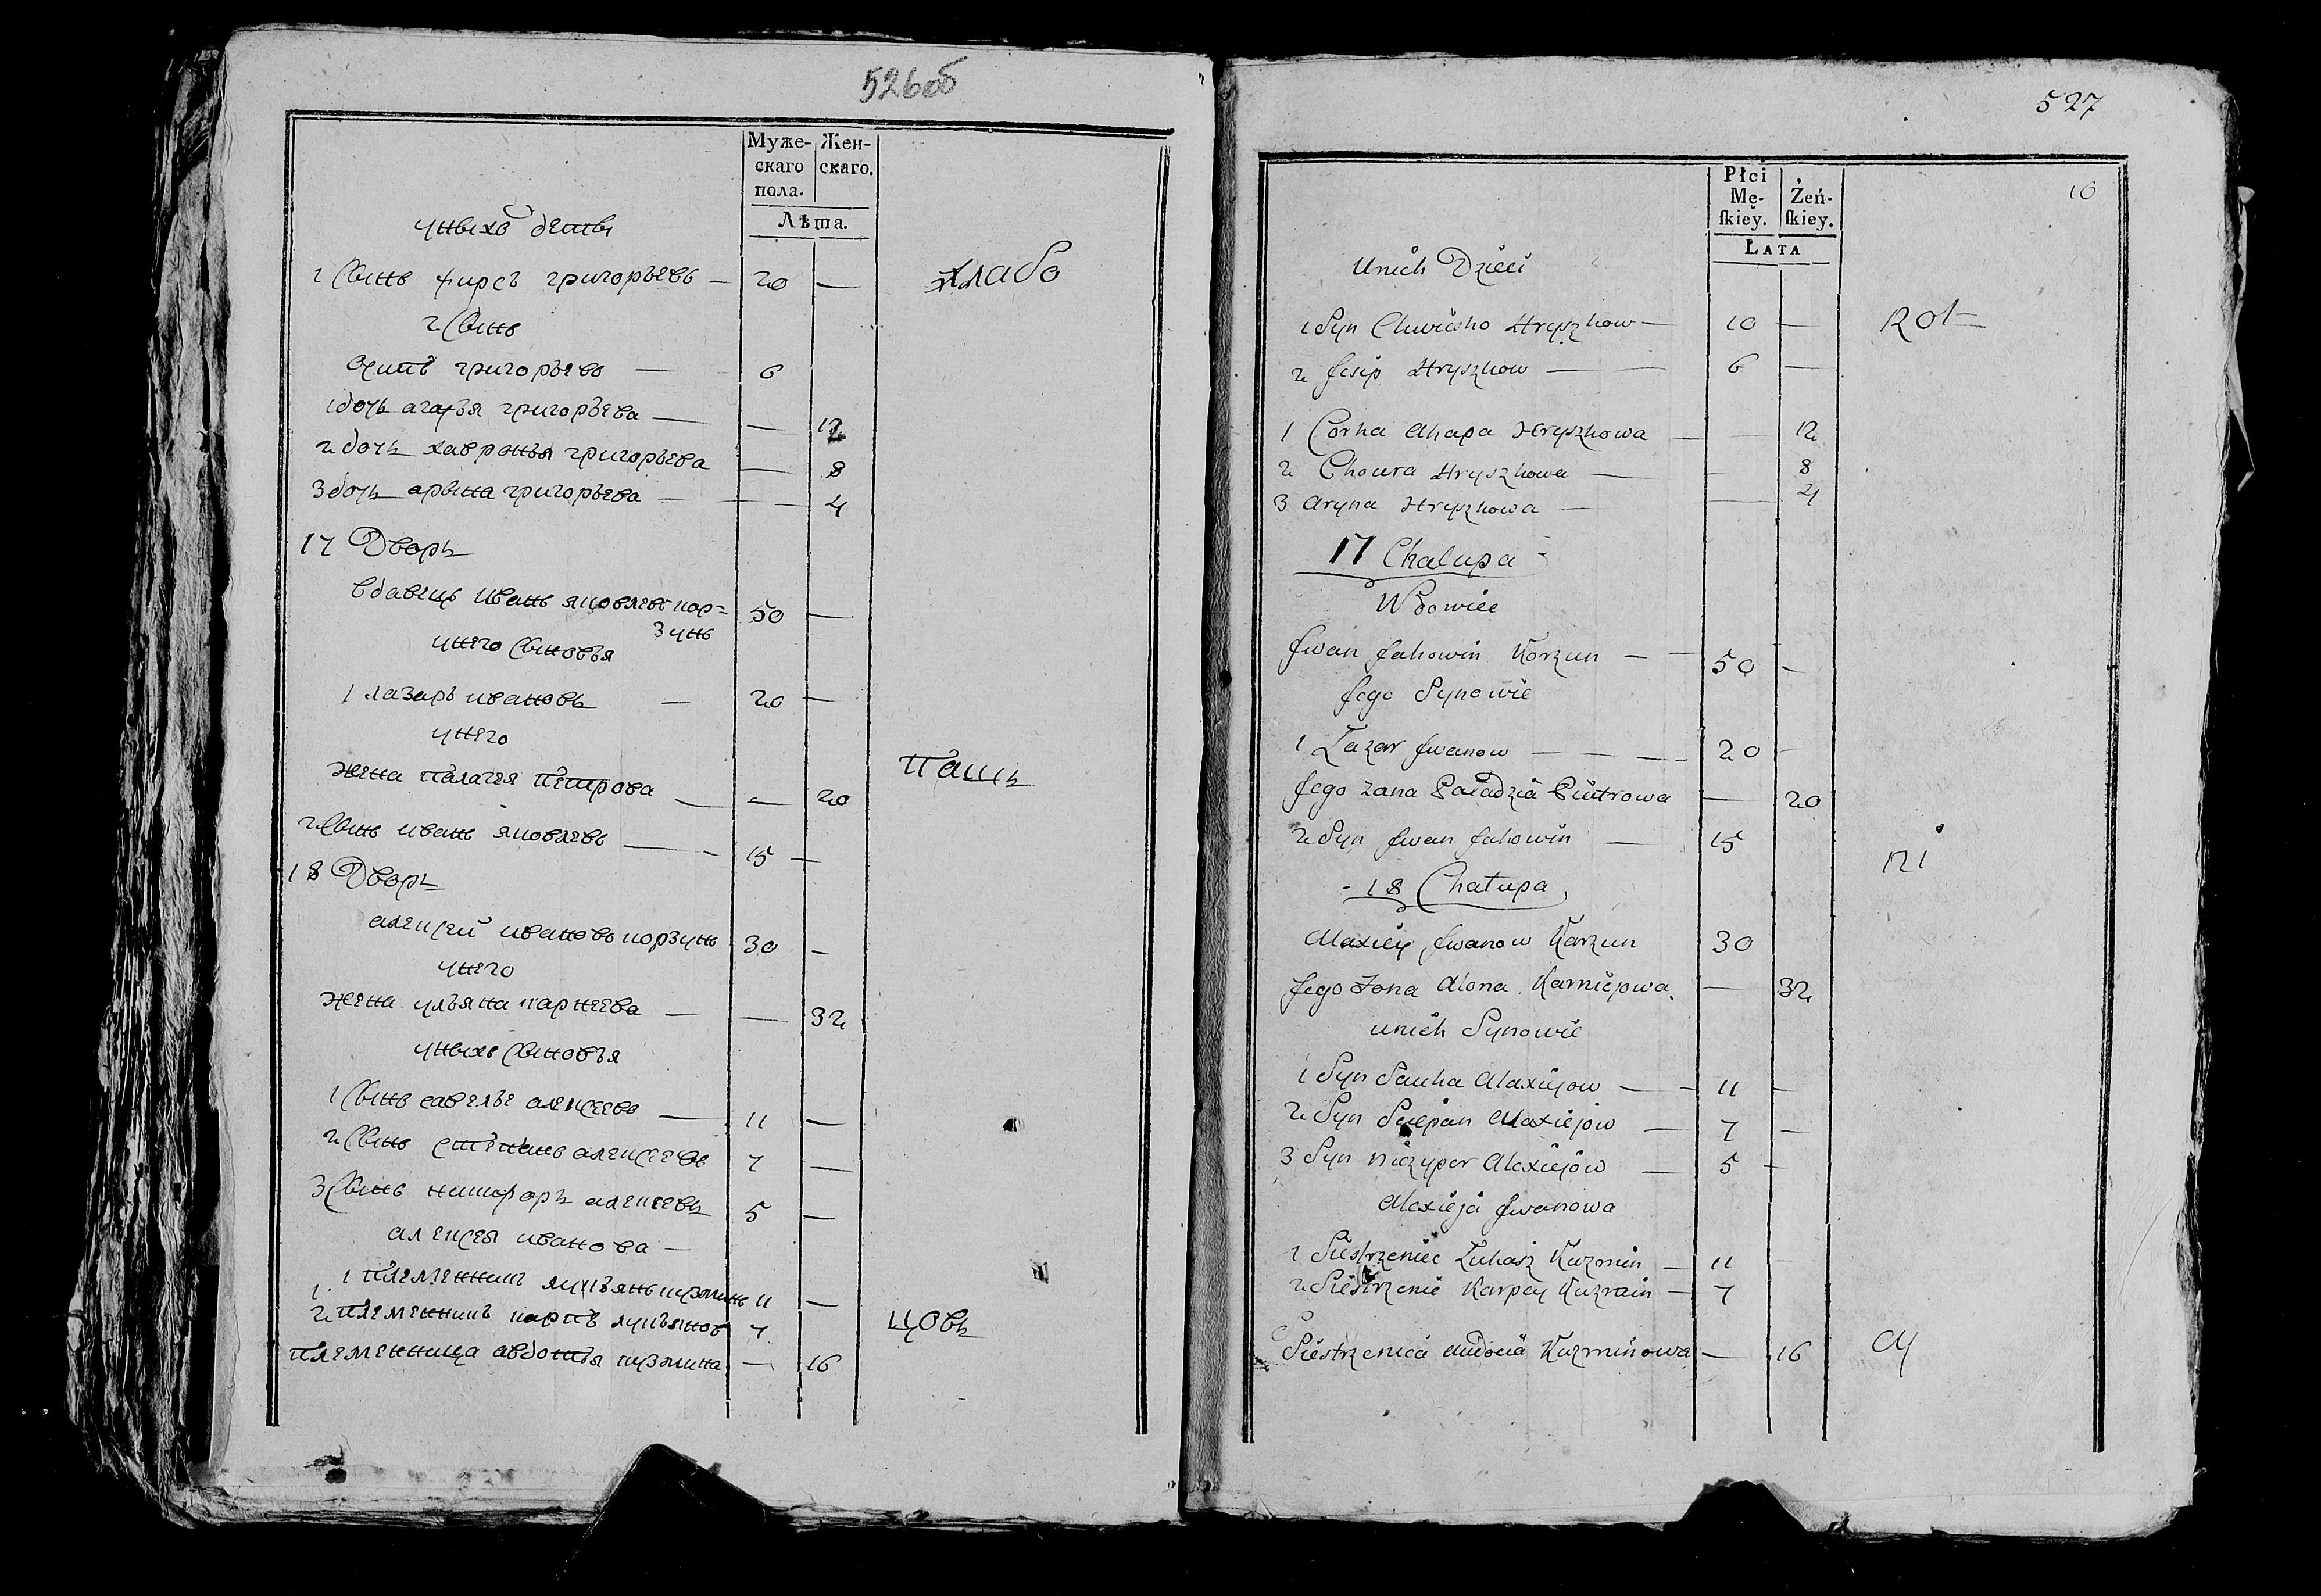 526об
Муже-
скаго
пола.
Жен-
скаго.
Лѣта.
уныхъ дети
1 Сынъ фирсъ григорьевъ — 20 —
2 Сынъ
григорьевъ — 6
1 дочь агафья григорьева — — 12
2 дочь хавронья григорьева — 8
3 дочь арына григорьева — — 4
17 Дворъ
вдавецъ иванъ яковлевъ кор=
зунъ 50 —
унего Сыновья
1 лазарь ивановъ — 20 —
унего
жена палагея петрова — — 20
2 Сынъ иванъ яковлевъ — 15 —
18 Дворъ
алексей ивановъ корзунъ 30 —
унего
жена ульяна карнеева — — 32
уныхъ Сыновья
1 Сынъ савелье алексеевъ — 11 —
2 Сынъ степанъ алексеевъ 7 —
3 Сынъ никифоръ алексеевъ 5 —
алексея иванова —
1 племенникъ лукьянъ кузминъ 11 —
2 племенникъ карпъ лукьянов 7
племенница авдотья кузмина — 16
слабо
пащъ
цовъ
527
10
Płci
Mę-
skiey.
Żeń-
skiey.
Lata
Unich Dzieci
1 Syn Chwiesko Hryszkow — 10 —
2 Jesip Hryszkow — — 6 —
1 Corka Ahapa Hryszkowa — — 12
2 Choura Hryszkowa — — 8
3 Aryna Hryszkowa — — 4
17 Chalupa
Wdowiec
Jwan Jakowin Korzun — — 50 —
Jego Synowie
1 Łazar Jwanow — — — 20 —
Jego Zana Paładzia Piutrowa — 20
2 Syn Jwan Jakowin — 15
- 18 Chałupa
Alaxiey Jwanow Karzun 30
Jego Zona Alona Karniejowa — 32
unich Synowie
1 Syn Sauka Alaxiejow — — 11 —
2 Syn Sciepan Alaxiejow — 7 —
3 Syn Niczypor Alaxiejow — 5 —
Alaxieja Jwanowa
1 Siestrzeniec Łukasz Kuzmin — 11
2 Siestrzenie Karpey Kuzmin — 7
Siestrzenica Audocia Kuzminowa — 16